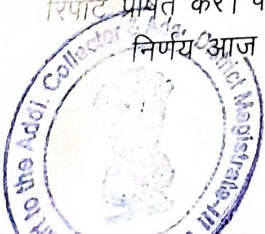 रिपोर्ट प्रेषित करें।
निर्णय आज
to the Addl. Collector & Addl. District Magistrate-III